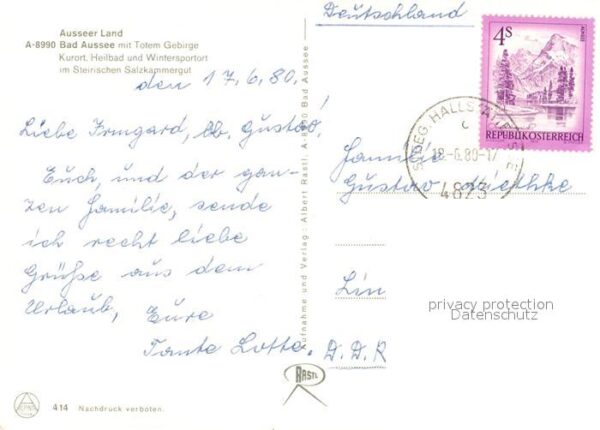 Ausseer Land
A-8990 Bad Aussee mit Totem Gebirge
Kurort, Heilbad und Wintersportort
im Steirischen Salzkammergut
den 17.6.80.
Liebe Irmgard, lb. Gustav!
Euch, und der gan-
zen Familie, sende
ich recht liebe
Grüße aus dem
Urlaub, Eure
Tante Lotte.
414 Nachdruck verboten.
Aufnahme und Verlag: Albert Rastl, A-8990 Bad Aussee
RASTL
Deutschland
4S
REPUBLIK ÖSTERREICH
HALLSTÄTTERSEE
18.-6.80-17
4823
Familie
Gustav
Lin
D.D.R
privacy protection
Datenschutz